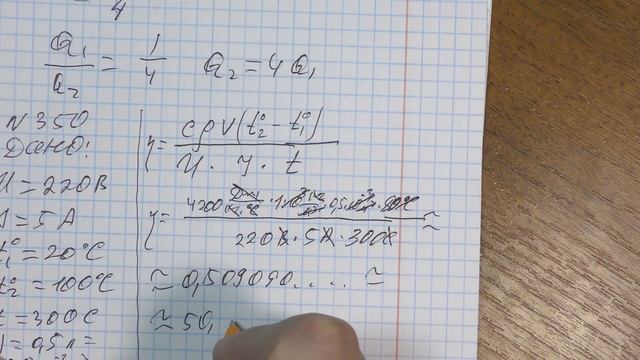 4
Q₁/Q₂ = 1/4 Q₂ = 4Q₁
N350
Дано:
U = 220 В
= 5 А
t₁° = 20°C
t₂° = 100°C
= 300 С
0,5 л =
η = cρV(t₂° - t₁°) / U · I · t
η = 4200 Дж/кг·°C · 1·10³ кг/м³ · 0,5·10⁻³ м³ · 80°C / 220В · 5А · 300с ≈
≈ 0,509090.... ≈
≈ 50,